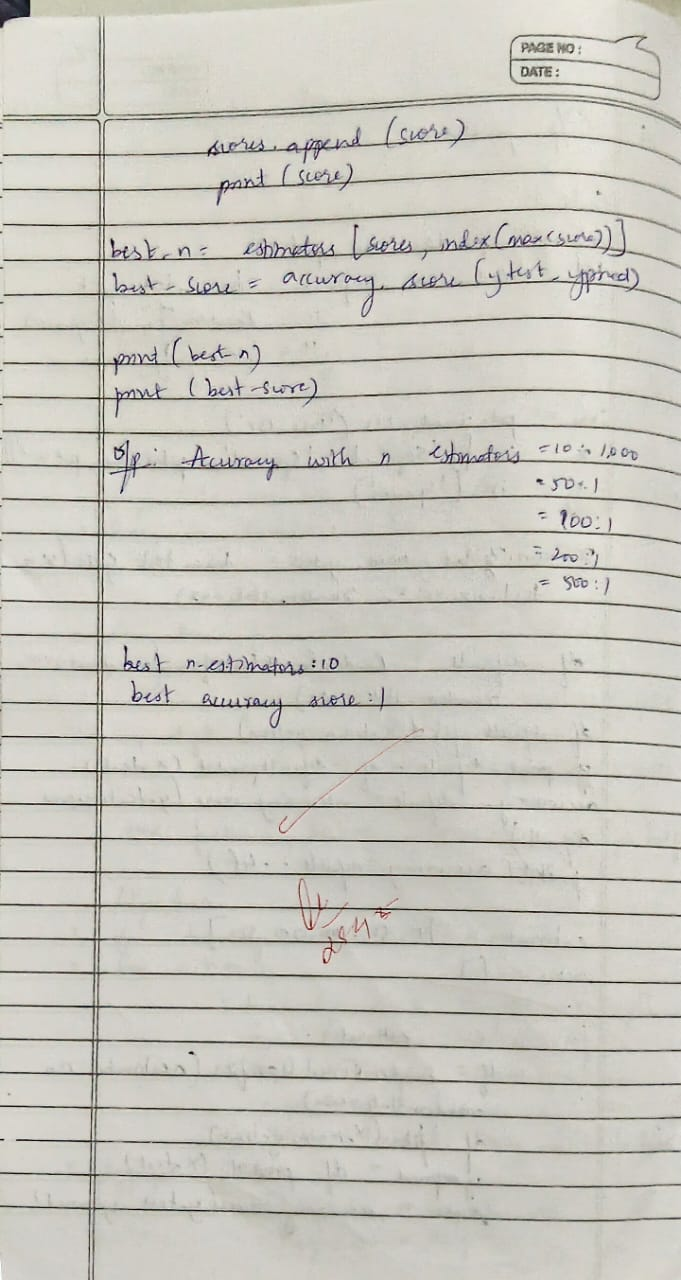 PAGE NO:
DATE:
scores.append (score)
print (score)
best-n = estimators [scores, index(max(score))]
best-score = accuracy. score (ytest-yppred)
print (best-n)
print (best-score)
o/p: Accuracy with n estimators = 10: 1.000
= 50:1
= 100:1
= 200:1
= 500:1
best n-estimators:10
best accuracy score:1